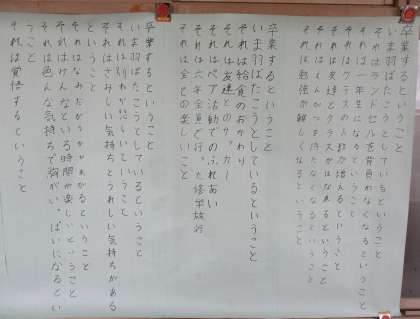 卒業するということ
いま羽ばたこうとしているということ
それはランドセルを背負わなくなるということ
それは一年生になるということ
それはクラスの人数が増えるということ
それは友達とクラスがはなれるということ
それはえんぴつを持たなくなるということ
それは勉強が難しくなるということ
卒業するということ
いま羽ばたこうとしているということ
それは給食のおかわり
それは友達とのサッカー
それはペア活動でのふれあい
それは六年全員で行った修学旅行
それは全ての楽しいこと
卒業するということ
いま羽ばたこうとしているということ
それは別れが悲しいということ
それはさみしい気持ちとうれしい気持ちがある
ということ
それはなみだがうかびあがるということ
それはみんなといる時間が楽しいということ
それは色んな気持ちで胸がいっぱいになるとい
うこと
それは覚悟するということ